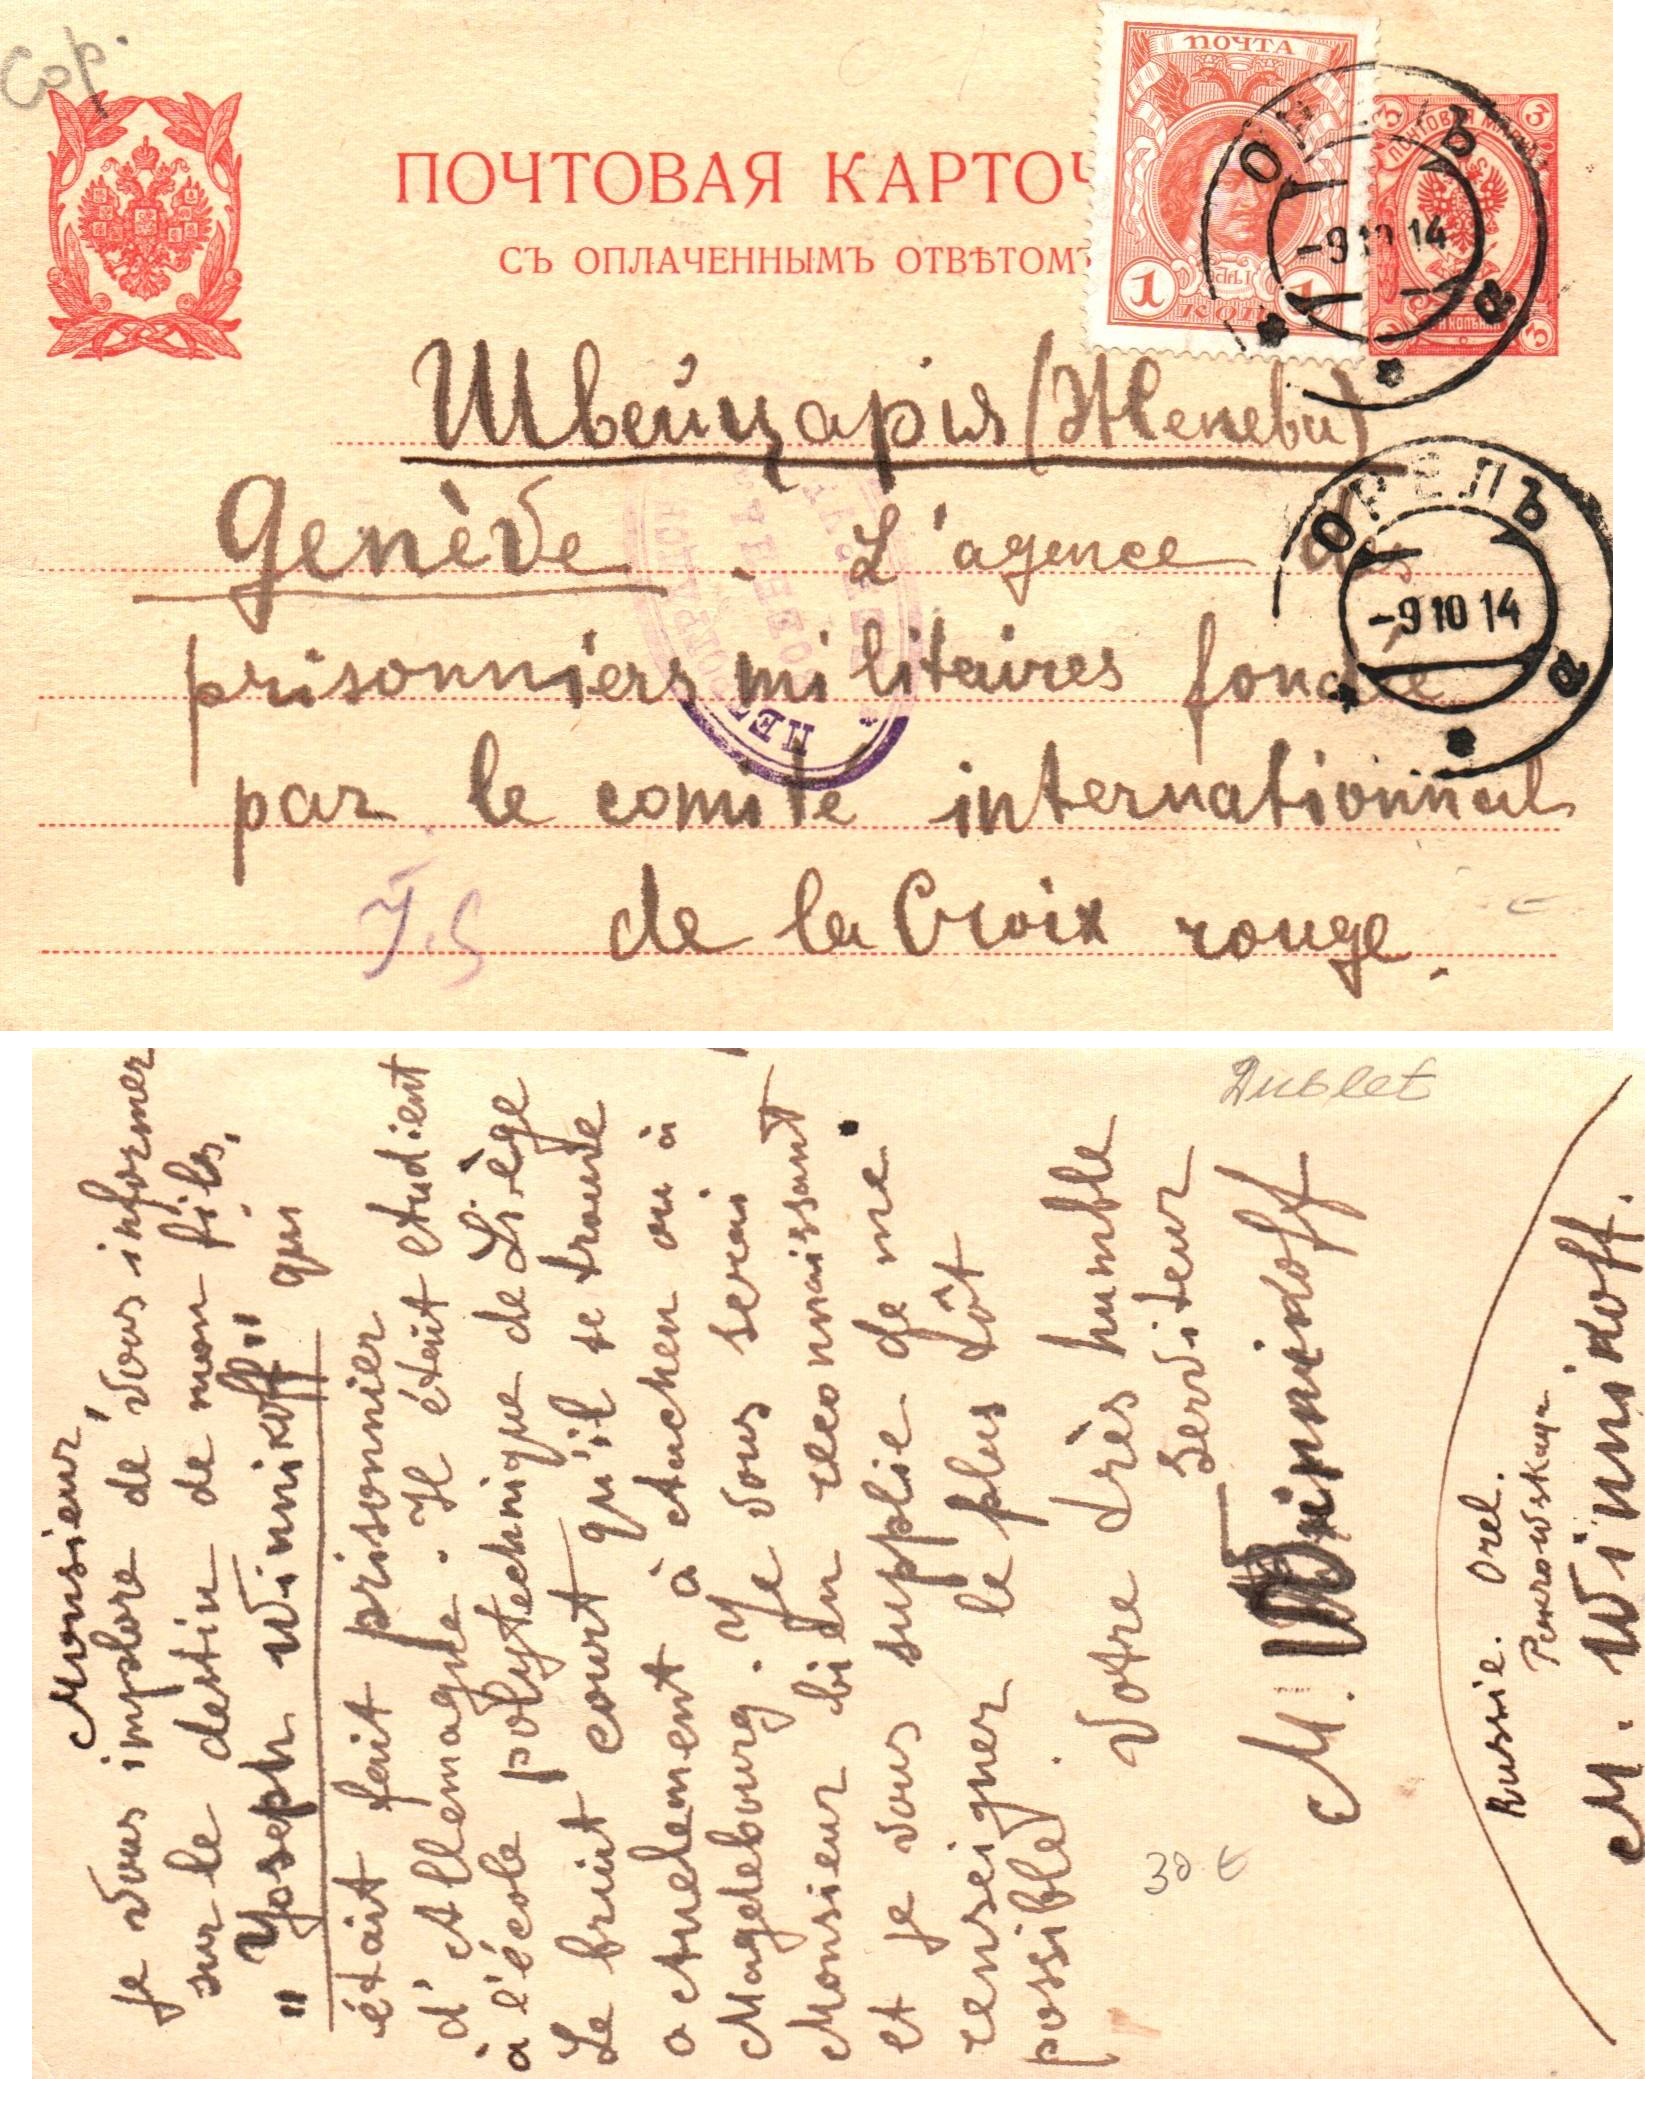 Cop.
ПОЧТОВАЯ КАРТОЧ
СЪ ОПЛАЧЕННЫМЪ ОТВѢТОМЪ
ПОЧТА
1
КОП
ПОЧТОВАЯ МАРКА
3 3
3 3
-9 10 14
а
Швейцарія (Женева)
ОРЕЛЪ
-9 10 14
а
Genève. L'agence des
prisonniers militaires fondée
par le comité internationnal
de la Croix rouge.
Dublet
Monsieur,
Je vous implore de vous informer
sur le destin de mon fils,
"Yoseph Winnikoff" qui
était fait prisonnier
d'Allemagne. Il était etudient
à l'école polytechnique de Liège
Le bruit court qu'il se trouve
actuelement à Aachen ou à
Magdebourg. Je vous serai
Monsieur bien reconnaissant
et je vous supplie de me
renseigner le plus tôt
possible.
Votre très humble
Serviteur
M. Winnikoff
30 €
Russie. Orel.
Pokrowskaya
M. Winnikoff.